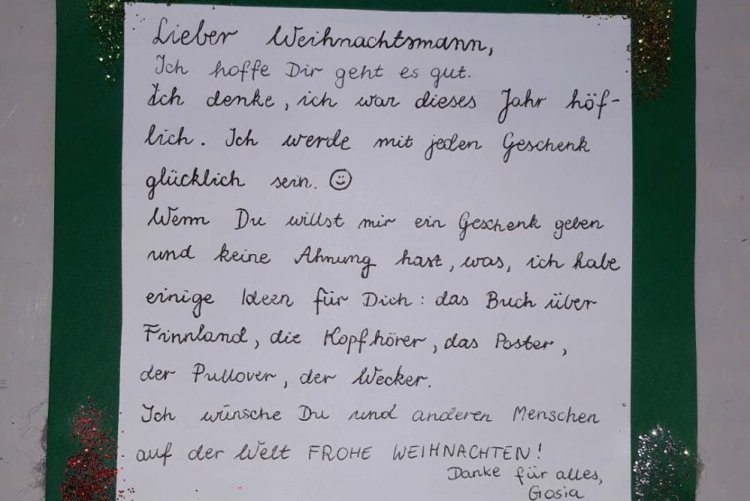 Lieber Weihnachtsmann,
Ich hoffe Dir geht es gut.
Ich denke, ich war dieses Jahr höf-
lich. Ich werde mit jeden Geschenk
glücklich sein. ☺
Wenn Du willst mir ein Geschenk geben
und keine Ahnung hast, was, ich habe
einige Ideen für Dich: das Buch über
Finnland, die Kopfhörer, das Poster,
der Pullover, der Wecker.
Ich wünsche Du und anderen Menschen
auf der Welt FROHE WEIHNACHTEN!
Danke für alles,
Gosia